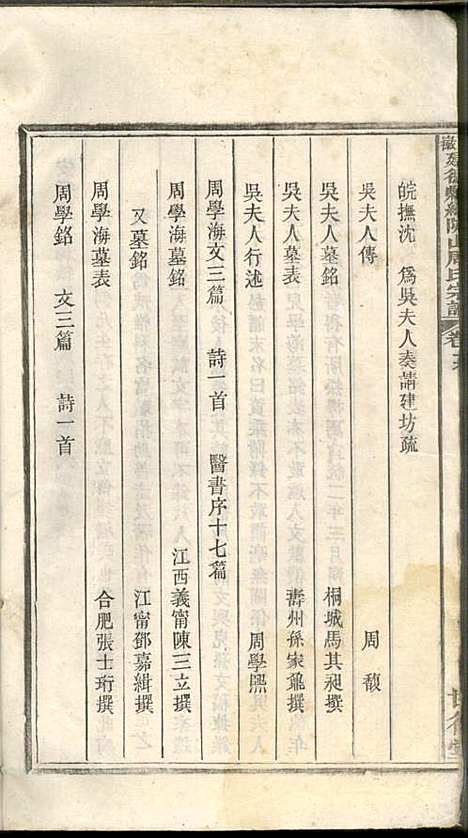 皖撫沈　爲吳夫人奏請建坊疏
吳夫人傳　周　馥
吳夫人墓銘　桐城馬其昶撰
吳夫人墓表　壽州孫家鼐撰
吳夫人行述　周學熙
周學海文三篇　詩一首　醫書序十七篇
周學海墓銘　江西義甯陳三立撰
又墓銘　江甯鄧嘉緝撰
周學海墓表　合肥張士珩撰
周學銘　文三篇　詩一首